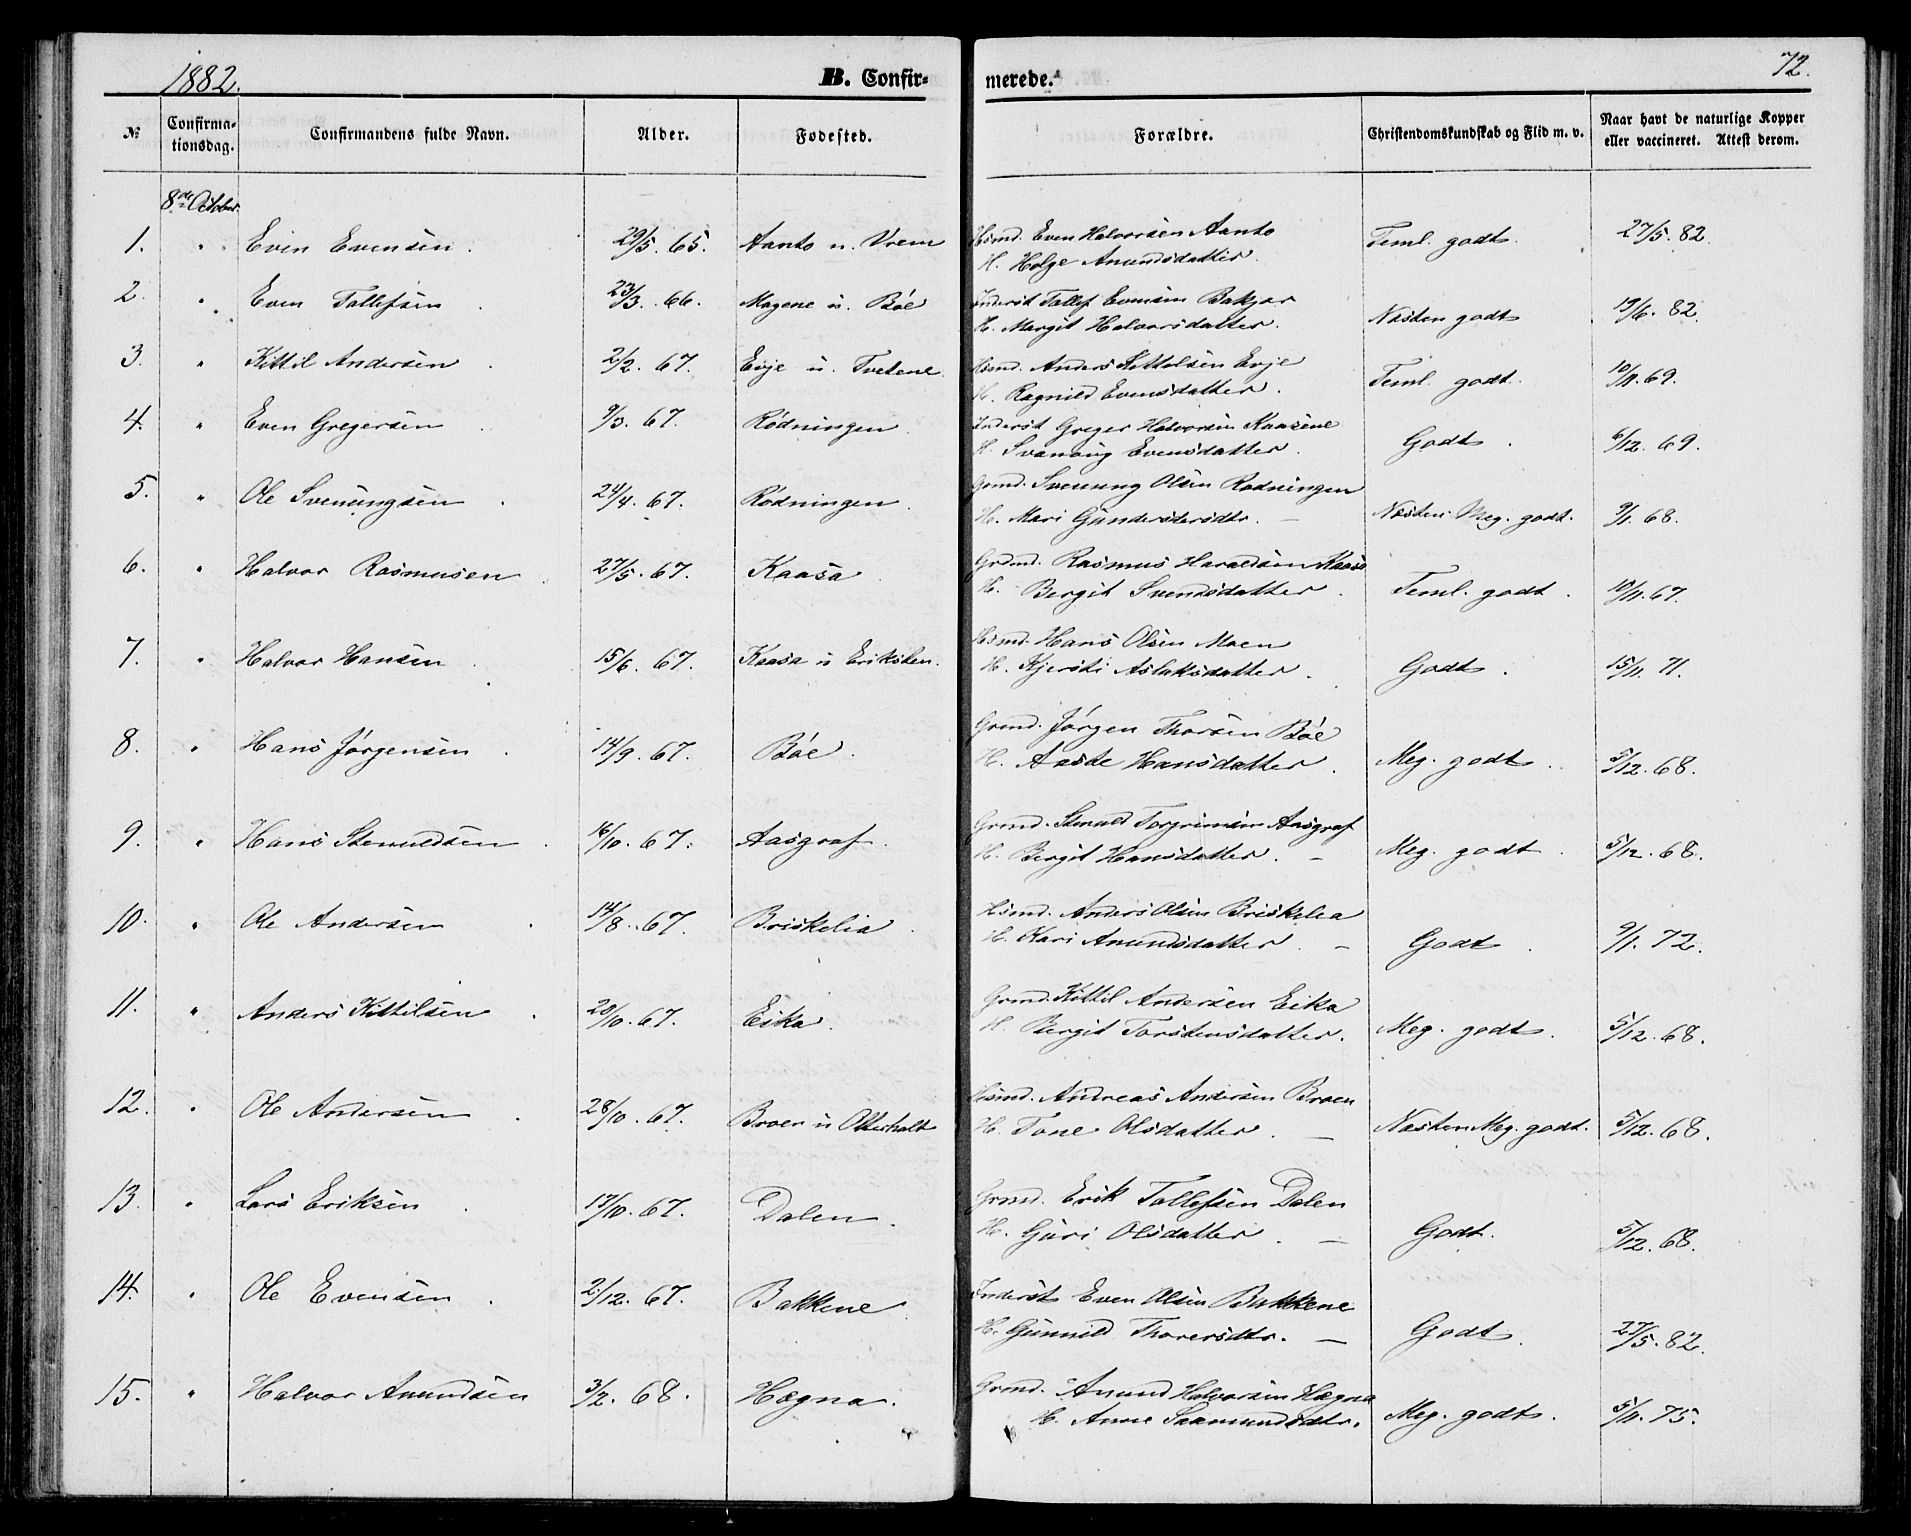 1882.
B. Confirmerede.
72.
№
Confirmationsdag.
Confirmandens fulde Navn.
Alder.
Fødested.
Forældre.
Christendomskundskab og Flid m. v.
Naar havt de naturlige Kopper eller vaccineret. Attest derom.
8de October
1. " Even Evensen. 29/5. 65. Aanto u. Vrem Hsmd. Even Halvorsen Aanto Teml. godt. 27/5. 82.
H. Helge Amundsdatter.
2. " Even Tollefsen 23/3. 66. Mogene u. Bøe Inderst Tollef Evensen Bakjor Næsten godt 19/6. 82.
H. Margit Halvorsdatter.
3. " Kittil Andersen 2/2. 67. Evje u. Tvetene Hsmd. Anders Kittelsen Evje Teml. godt. 10/11. 69.
H. Ragnild Evensdatter.
4. " Even Gregersen 9/3. 67. Rødningen. Inderst Greger Halvorsen Kaasene Godt. 6/12. 69.
H. Svanaug Evensdatter.
5. " Ole Svenungsen 24/4. 67. Rødningen. Grmd. Svenung Olsen Rødningen Næsten Meg. godt. 9/1. 68.
H. Mari Gundersdr. —
6. " Halvor Rasmusen 27/5. 67. Kaasa Grdmd. Rasmus Haraldsen Kaasa Teml. godt. 10/11. 67.
H. Bergit Svendsdatter.
7. " Halvor Hansen 15/6. 67. Kaasa u Eriksten. Hsmd. Hans Olsen Moen Godt. 15/11. 71.
H. Kjersti Aslaksdatter.
8. " Hans Jørgensen 14/9. 67. Bøe. Grmd. Jørgen Thorsen Bøe Meg. godt. 5/12. 68.
H. Aaste Hansdatter.
9. " Hans Stenuldsen 16/10. 67. Aasgraf. Grmd. Stenuld Torgrimsen Aasgraf Meg. godt. 5/12. 68.
H. Bergit Hansdatter. —
10. " Ole Andersen 14/8. 67. Briskelia Hsmd. Anders Olsen Briskelia Godt. 9/1. 72.
H. Kari Amundsdatter. —
11. " Anders Kittilsen 20/10. 67. Eika. Grmd. Kittil Andersen Eika Meg. godt. 5/12. 68.
H. Bergit Torstensdatter.
12. " Ole Andersen 28/10. 67. Broen u Otterholt Hsmd. Andreas Andersen Broen Næsten Meg. godt. 5/12. 68.
H. Tone Olsdatter. —
13. " Lars Eriksen 17/10. 67. Dalen. Grmd. Erik Tollefsen Dalen Godt. 5/12. 68.
H. Guri Olsdatter. —
14. " Ole Evensen 2/12. 67. Bakkene Inderst Even Olsen Bakkene Godt. 27/5. 82.
H. Gunnild Thoresdtr. —
15. " Halvor Amundsen 3/2. 68. Hægna. Grmd. Amund Halvorsen Hægna Meg. godt. 5/11. 75.
H. Anne Saamundsdtr.